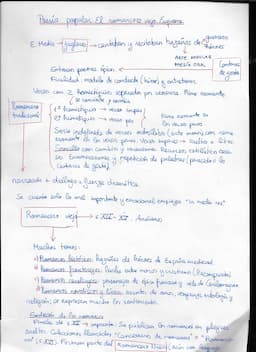 Poesía popular. El romancero viejo. Esquema
E. Media → juglares → cantaban y recitaban hazañas de guerreros
héroes
ARTE JUGLAR
POESÍA ORAL
Cantares de gesta
Cantaban poemas épicos.
Finalidad: modelo de conducta (héroe) y entretener.
Verso con 2 hemistiquios separados por cesura. Rima asonante
se cantaba y
Romancero tradicional
1º hemistiquio → verso impar
2º hemistiquio → verso par
Rima asonante en
los versos pares
Serie indefinida de versos octosílabos con rima
asonante en los versos pares. Versos impares → sueltos o libres.
Sencillo con
Enumeraciones y repetición de palabras
cantares de gesta).
narración + diálogo → fuerza dramática.
Se cuenta solo lo más importante y emocional, empieza "in media res"
Romancero viejo → s. XIV - XV Anónimos
Muchos temas:
a) Romances históricos: hazañas de héroes de España medieval
b) Romances fronterizos: lucha entre moros y cristianos (Reconquista)
c) Romances carolingios: personajes de épica francesa y corte de Carlomagno
d) Romances novelescos y líricos: asunto de amor, venganza, mitología y
religión; se expresan mucho los sentimientos.
Finales de s. XV → imprenta. Se publican los romances en pliegos
sueltos. Colecciones llamadas "Cancionero de romances" o "Romance-
ro" (s. XVI). Forman parte del Romancero Viejo